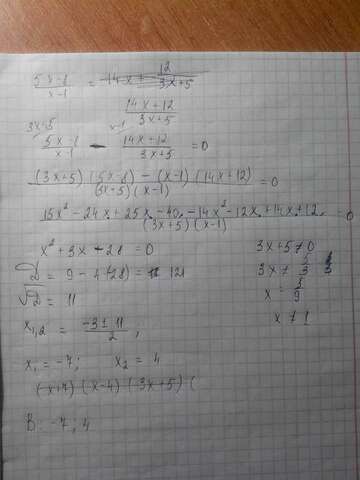 (5x-8)/(x-1) = 14x+12/(3x+5)
(14x+12)/(3x+5)
3x+5 x-1
(5x-8)/(x-1) - (14x+12)/(3x+5) = 0
((3x+5)(5x-8)-(x-1)(14x+12))/((3x+5)(x-1)) = 0
(15x²-24x+25x-40-14x²-12x+14x+12)/((3x+5)(x-1)) = 0
x²+3x-28=0 3x+5≠0
D = 9-4(-28) = 121 3x≠
√D = 11 x =
x₁,₂ = (-3±11)/2; x≠1
x₁=-7; x₂=4
(x+7)(x-4)(3x+5)(
В: -7; 4